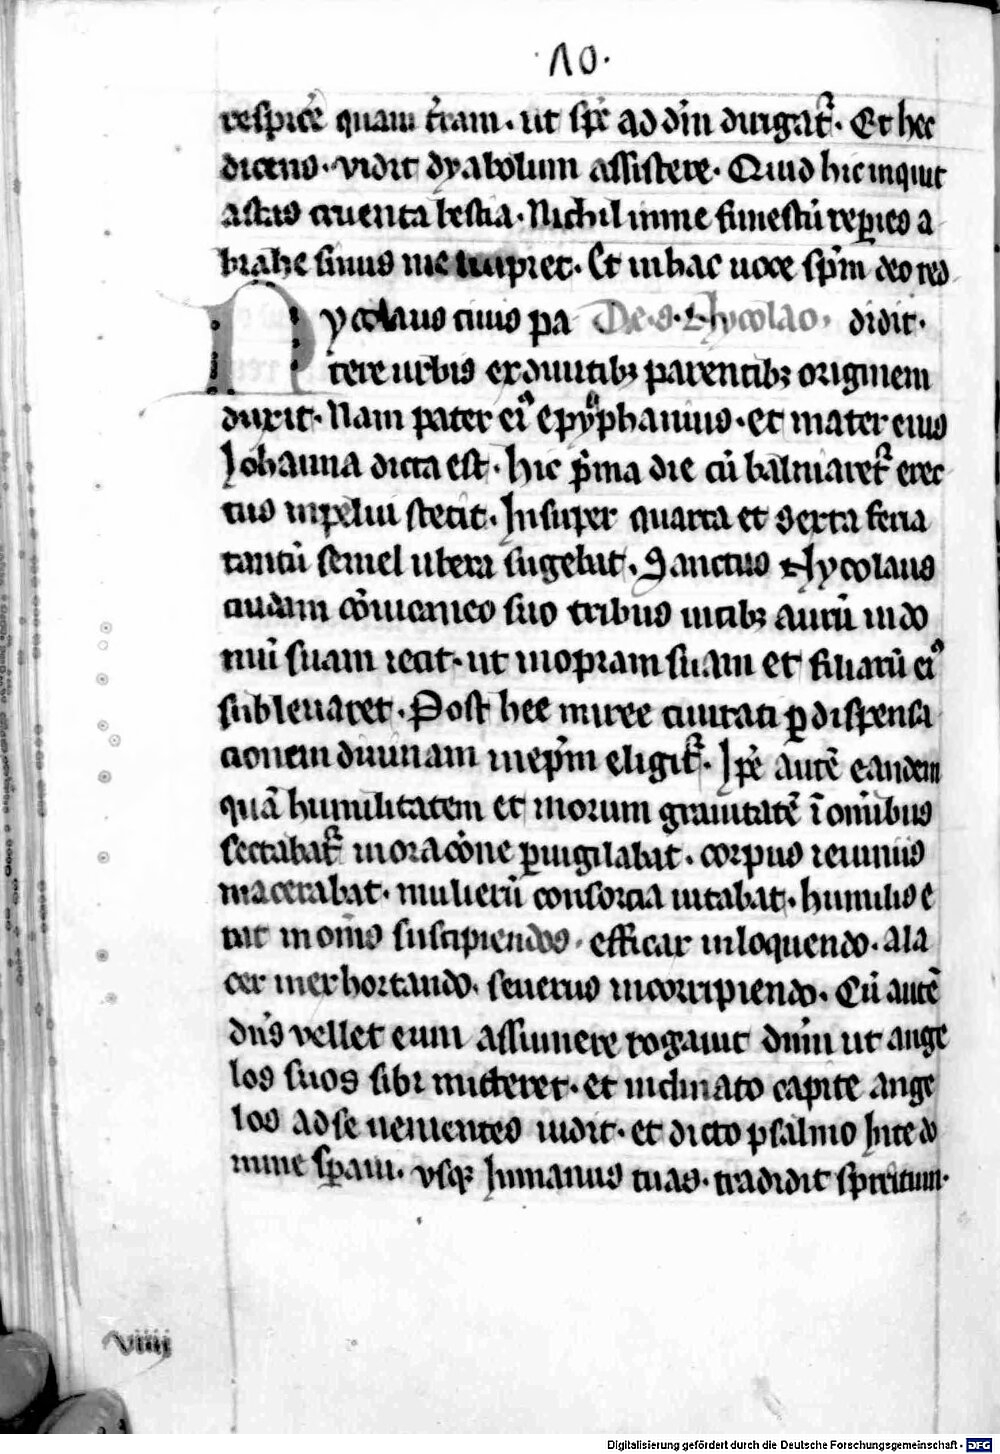 ·10·
respicẽ quam t̃ram· ut spc̃ ad dñm dirigat᷑· Et hec
dicens· vidit dyabolum assistere· Quid hic inquit
astas cruenta bestia· Nichil in me funestũ reꝑies a
brahe sinus me suscipiet· Et in hac uoce sp̃m deo red
Nycolaus ciuis pa De · s · Nycolao · didit·
tere urbis ex diuitibꝫ parentibꝫ originem
duxit· Nam pater eiꝰ epyphanius· et mater eius
Johanna dicta est· hic p̃ma die cũ balniaret᷑ erec
tus in pelui stetit· Insuper quarta et sexta feria
tantũ semel ubera sugebat· Sanctus Nycolaus
cuidam cõuicaneo suo tribus uicibꝫ aurũ in do
mũ suam iecit· ut inopiam suam et filiarũ eiꝰ
subleuaret· Post hec miree ciuitati ꝑ dispensa
cionem diuinam in ep̃m eligit᷑· Ip̃e autẽ eandem
quã humilitatem et morum grauitatẽ ĩ omĩbus
sectabat᷑ in oracõne ꝑuigilabat· corpus ieiuniis
macerabat· mulierũ consorcia uitabat· humilis e
rat in om̃s suscipiendos· efficax in loquendo· ala
cer in exhortando· seuerus in corripiendo· Cũ autẽ
dñs vellet eum assumere rogauit dñm ut ange
los suos sibi mitteret· et inclinato capite ange
los ad se uenientes uidit· et dicto psalmo In te do
mine sꝑaui· vsqꝫ In manus tuas· tradidit spiritum·
viiij
Digitalisierung gefördert durch die Deutsche Forschungsgemeinschaft - DFG